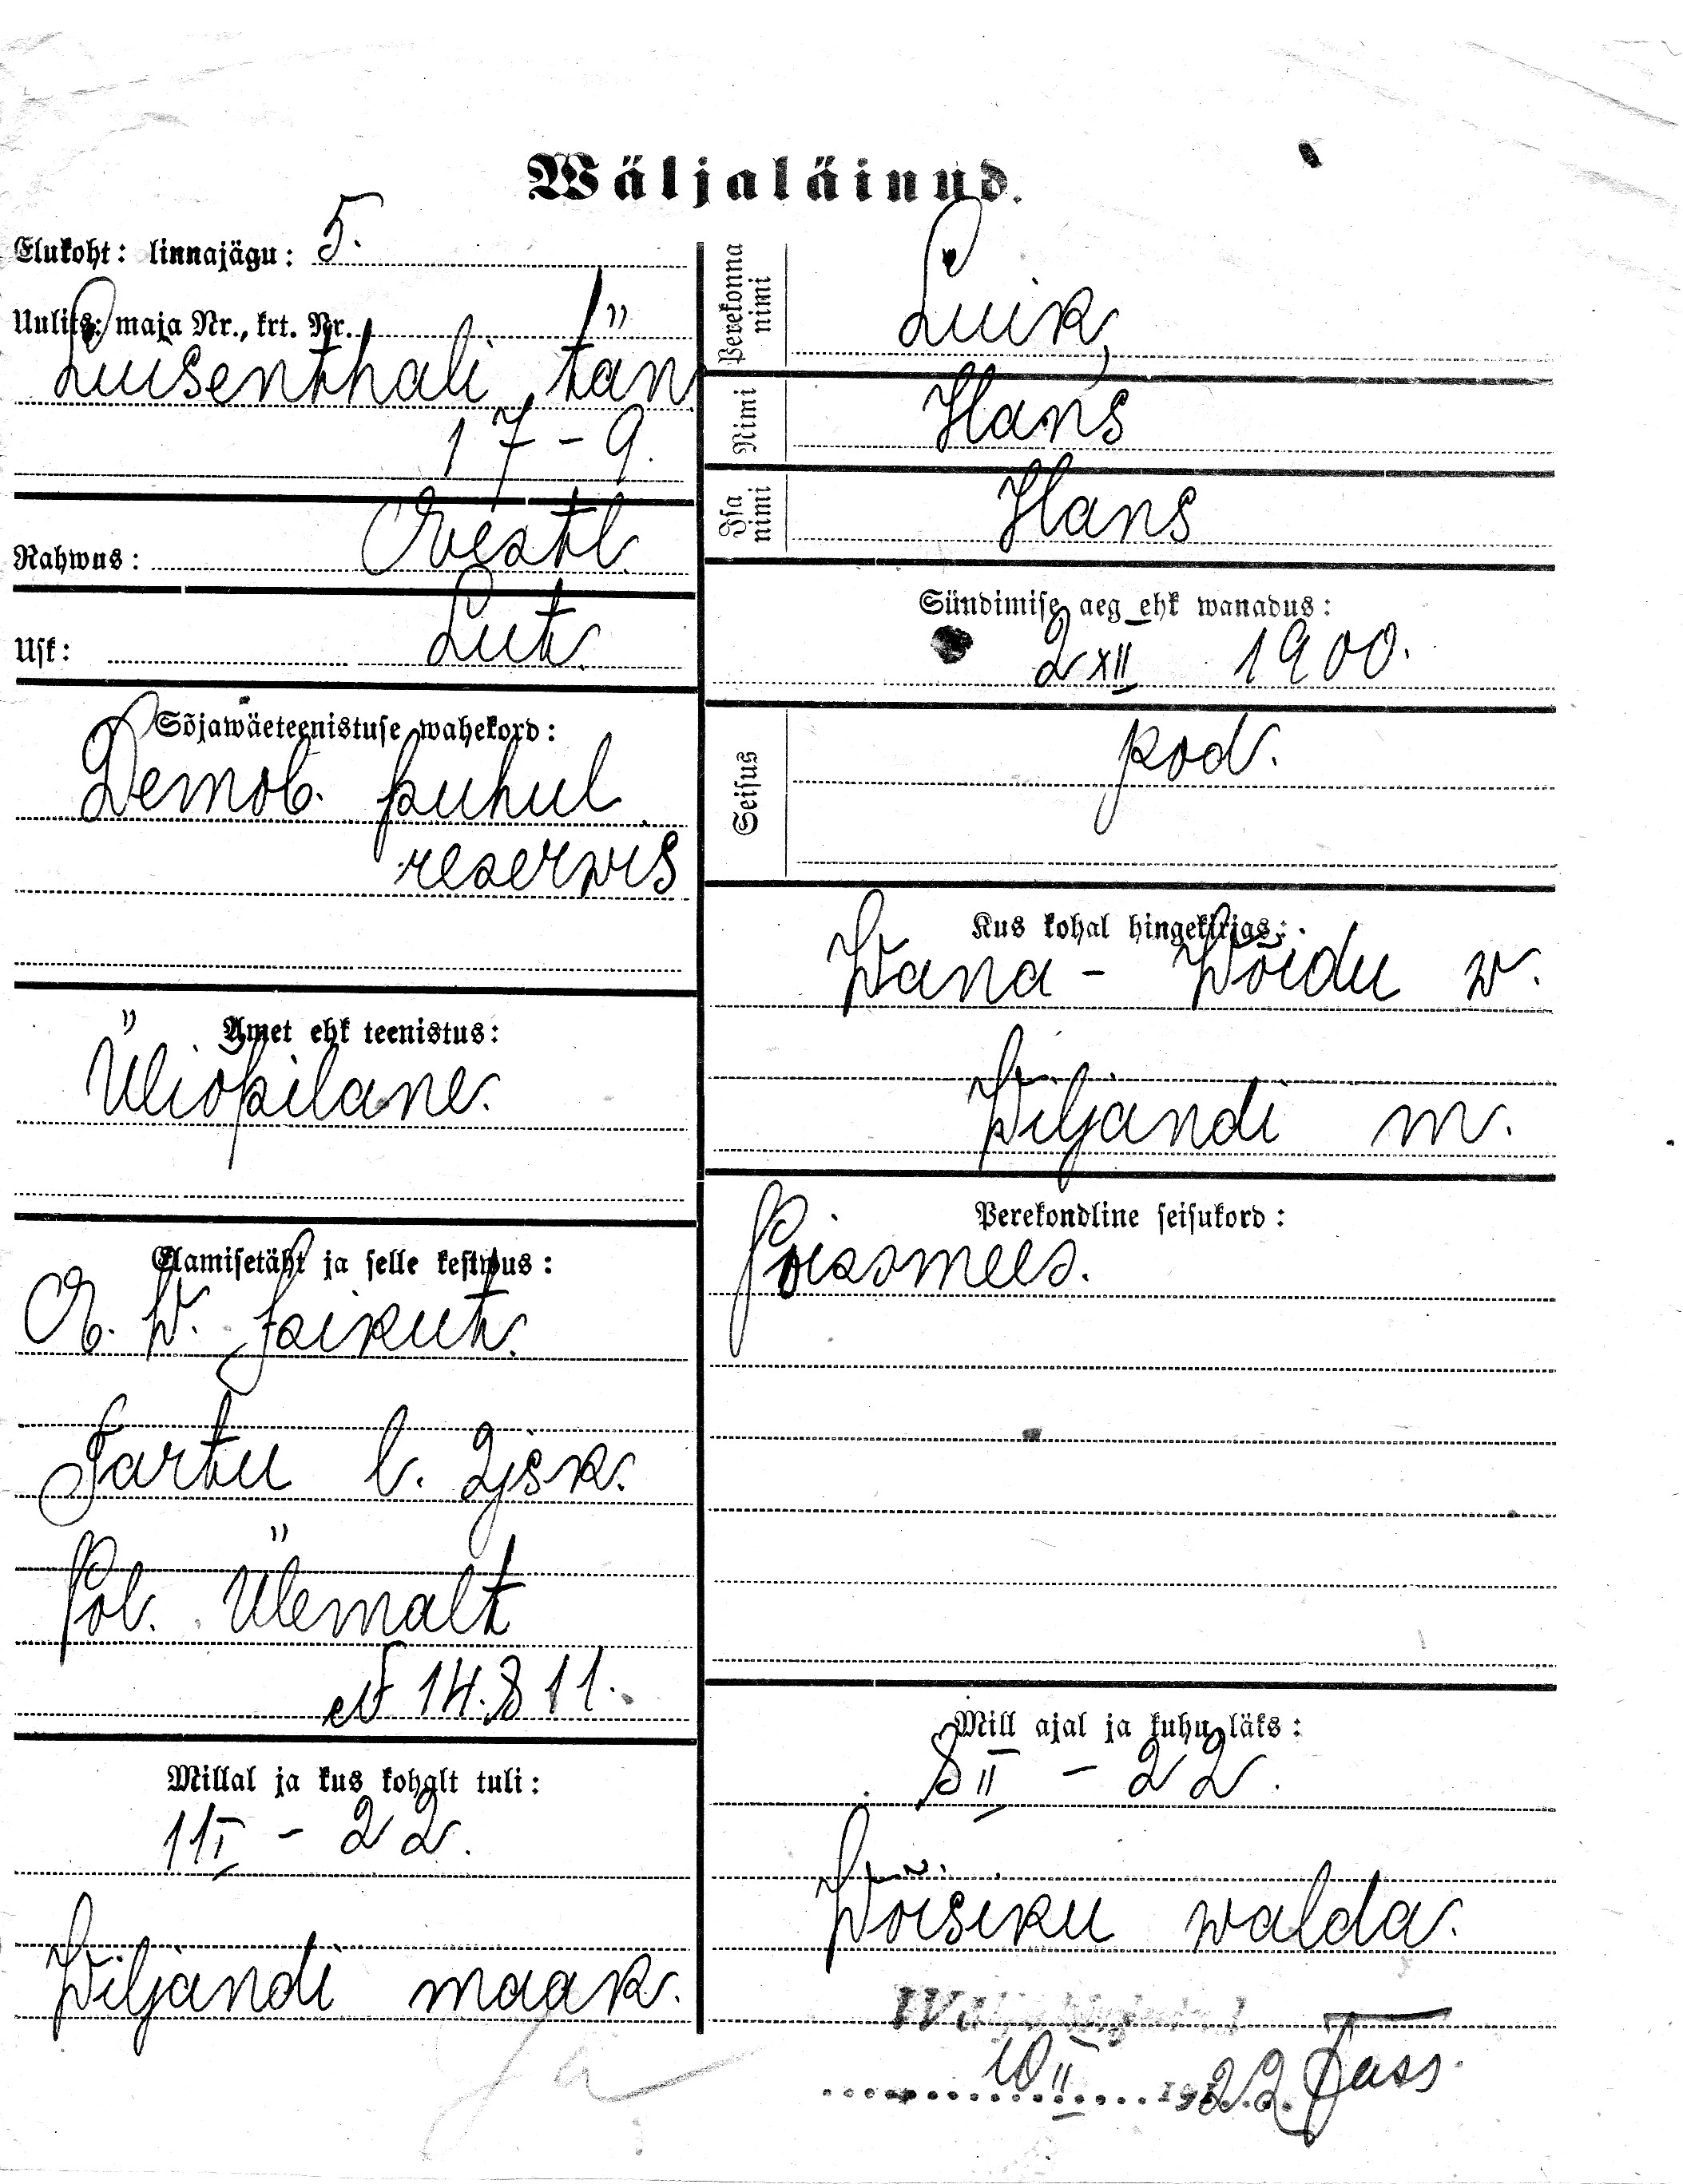 Wäljaläinud.
Elukoht: linnajägu: 5.
Uulits, maja Nr., krt. Nr.
Luisenthali tän
17-9.
Rahwus: Eestl.
Usk: Lut.
Sõjawäeteenistuse wahekord:
Demob. puhul
reserwis
Amet ehk teenistus:
Üliõpilane.
Elamisetäht ja selle kestwus:
E. W. isikut.
Tartu l. 2 jsk.
Pol. Ülemalt
№ 14.811.
Millal ja kus kohalt tuli:
11 I - 22.
Wiljandi maak.
Perekonna nimi
Luik,
Nimi
Hans
Isa nimi
Hans
Sündimise aeg ehk wanadus:
2 XII 1900.
Seisus
kod.
Kus kohal hingekirjas:
Wana-Wõidu w.
Wiljandi m.
Perekondline seisukord:
Poissmees.
Mill ajal ja kuhu läks:
8 II - 22.
Wõisiku walda.
10 II 1922.